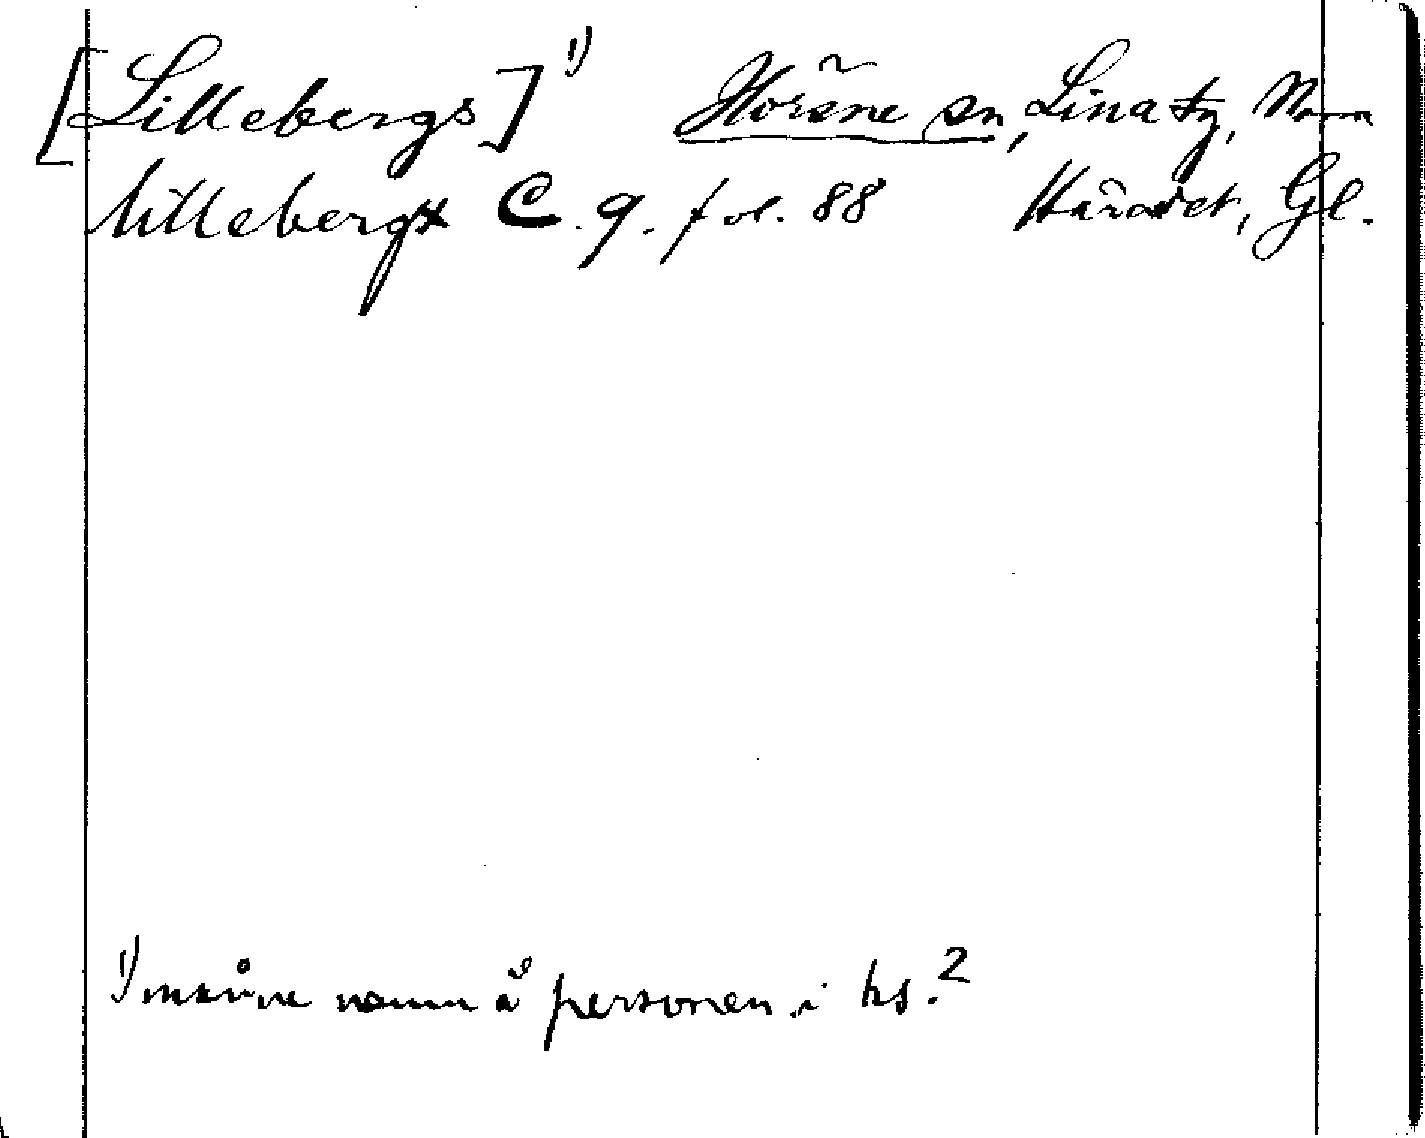 [Lillebergs] 1) Hörsne sn, Lina tg, Norra
lillebergx C. 9. fol. 88 Häradet, Gl.
1) månne namn å personen i hs.?